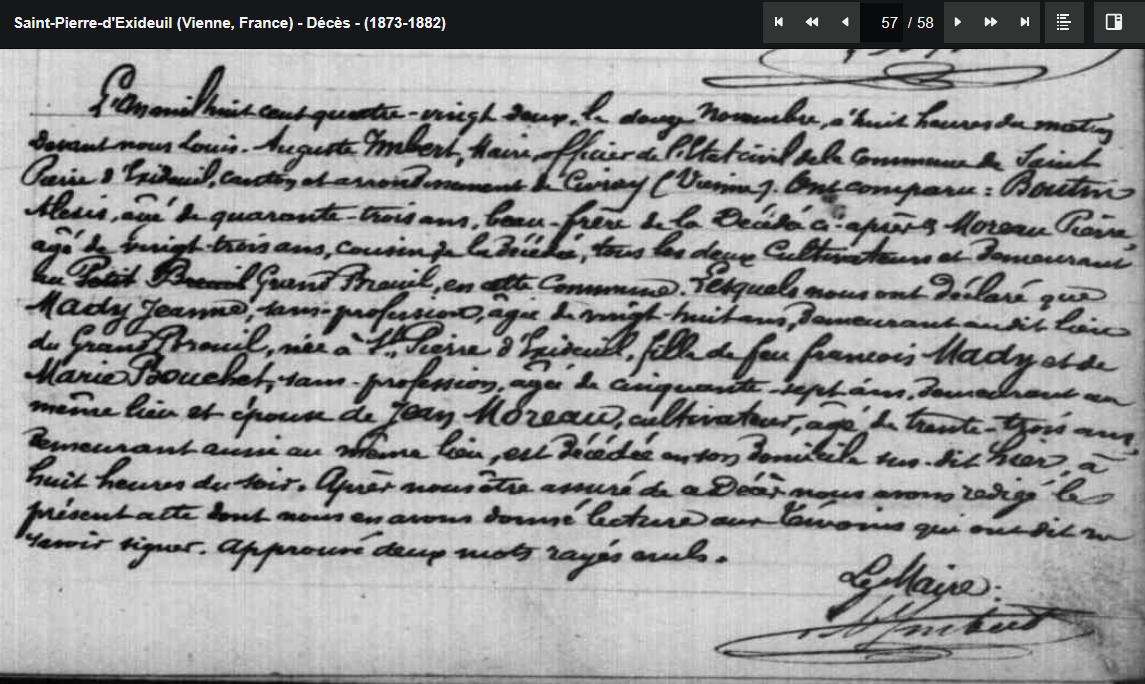 Saint-Pierre-d'Exideuil (Vienne, France) - Décès - (1873-1882)
57 / 58
L'An mil huit cent quatre-vingt deux, le douze Novembre, à huit heures du matin
devant nous Louis-Auguste Imbert, Maire, officier de l'Etat civil de la Commune de Saint
Pierre d'Exideuil, canton et arrondissement de Civray (Vienne). Ont comparu : Boutin
Alexis, âgé de quarante-trois ans, beau-frère de la Décédée ci-après & Moreau Pierre,
âgé de vingt-trois ans, cousin de la Décédée, tous les deux Cultivateurs et Demeurant
au Petit Breuil Grand Breuil, en cette Commune. Lesquels nous ont déclaré que
Mady Jeanne, sans profession, âgée de vingt-huit ans, Demeurant au dit lieu
du Grand Breuil, née à St Pierre d'Exideuil, fille de feu francois Mady et de
Marie Bouchet, sans-profession, âgée de cinquante-sept ans, Demeurant au
même lieu et épouse de Jean Moreau, cultivateur, âgé de trente-trois ans,
Demeurant aussi au même lieu, est Décédée en son Domicile sus-dit hier, à
huit heures du soir. Après nous être assuré de ce Décès nous avons rédigé le
présent acte dont nous en avons donné lecture aux témoins qui ont dit ne
savoir signer. Approuvé deux mots rayés nuls.
Le Maire :
Imbert